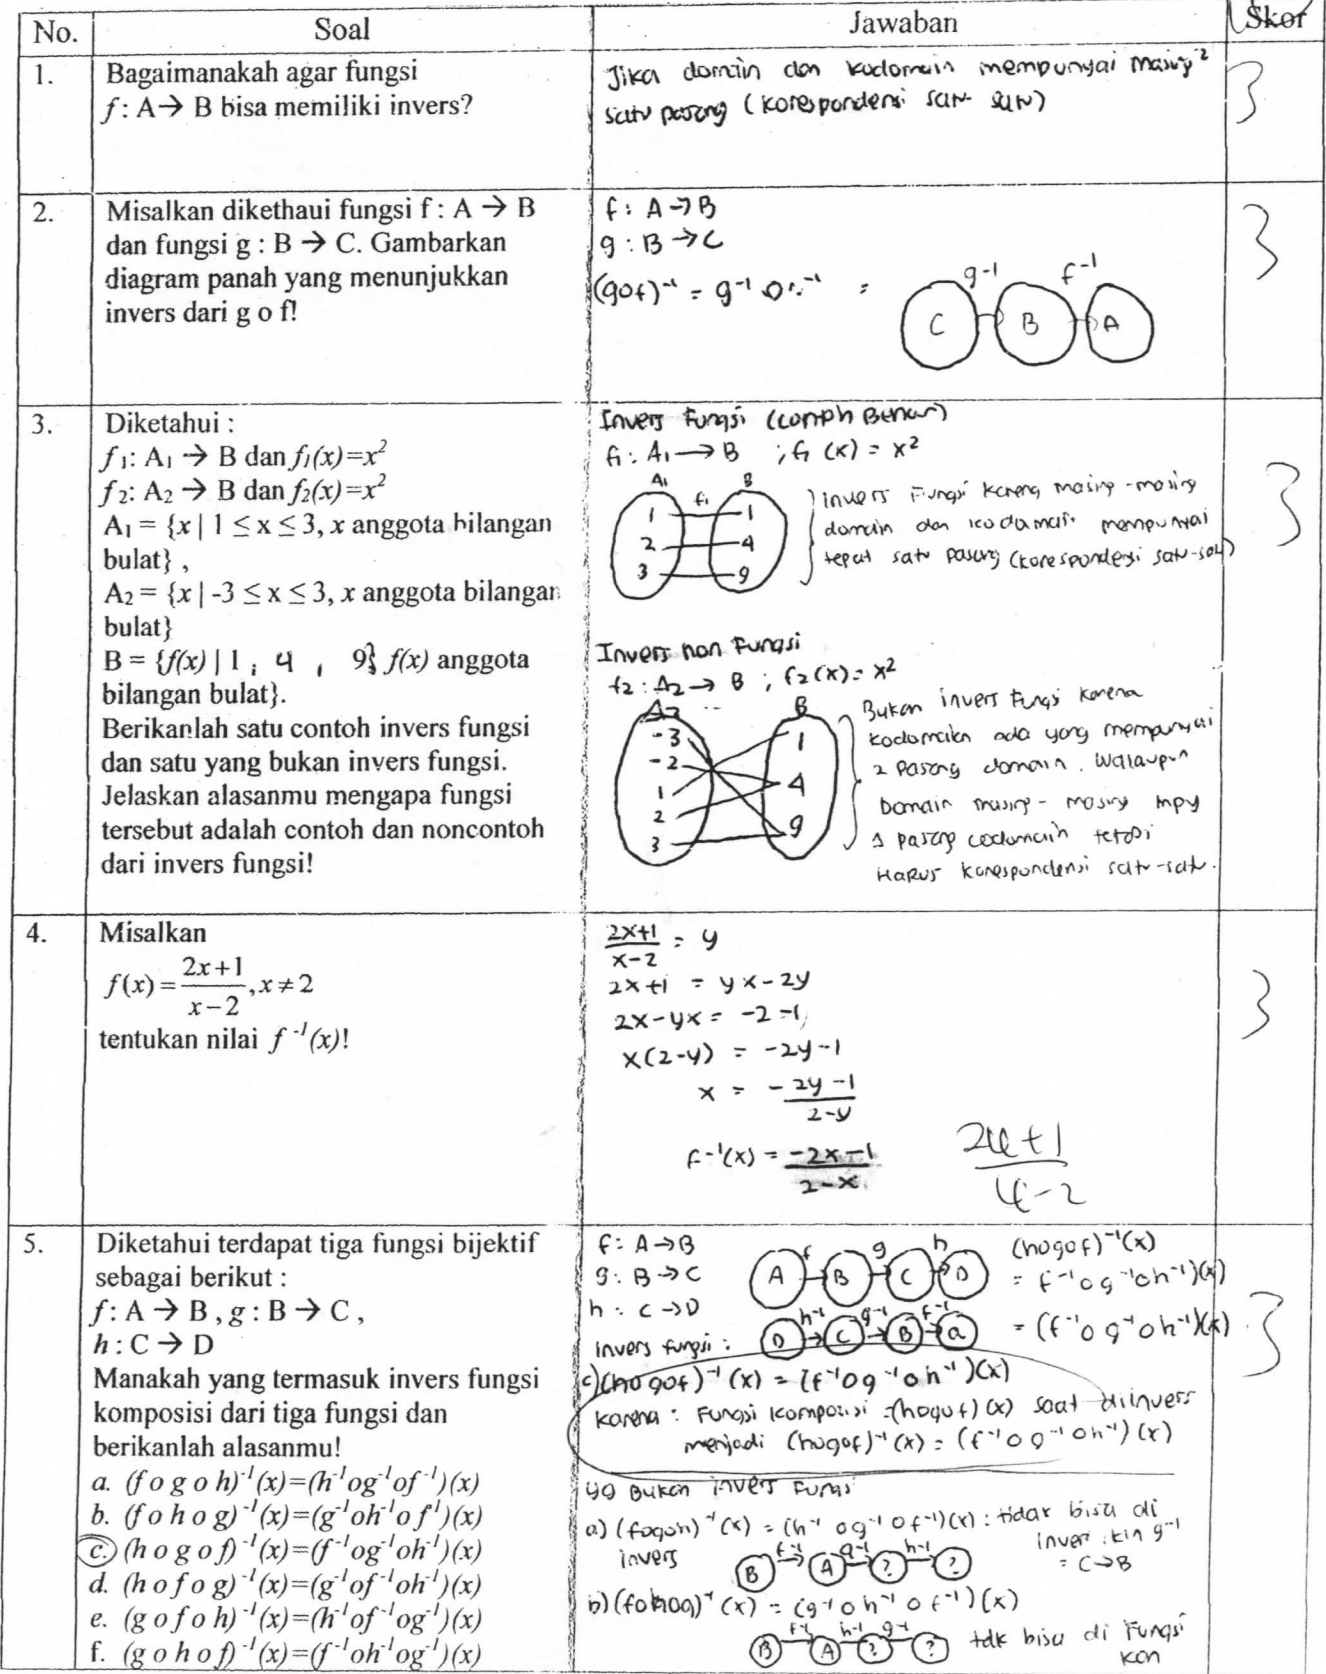 No. Soal Jawaban Skor
1. Bagaimanakah agar fungsi
f : A → B bisa memiliki invers?
Jika domain dan kodomain mempunyai masing²
satu pasang (korespondensi satu-satu)
3
2. Misalkan dikethaui fungsi f : A → B
dan fungsi g : B → C. Gambarkan
diagram panah yang menunjukkan
invers dari g o f!
f : A → B
g : B → C
(gof)⁻¹ = g⁻¹ o ⁻¹ =
g⁻¹ f⁻¹
C B A
3
3. Diketahui :
f₁: A₁ → B dan f₁(x)=x²
f₂: A₂ → B dan f₂(x)=x²
A₁ = {x | 1 ≤ x ≤ 3, x anggota bilangan
bulat} ,
A₂ = {x | -3 ≤ x ≤ 3, x anggota bilangan
bulat}
B = {f(x) | 1 , 4 , 9} f(x) anggota
bilangan bulat}.
Berikanlah satu contoh invers fungsi
dan satu yang bukan invers fungsi.
Jelaskan alasanmu mengapa fungsi
tersebut adalah contoh dan noncontoh
dari invers fungsi!
Invers Fungsi (contoh Benar)
f₁ : A₁ → B ; f₁ (x) = x²
A₁ f₁ B
1 1
2 4
3 9
invers Fungsi karena masing-masing
domain dan kodamain mempunyai
tepat satu pasang (korespondensi satu-satu)
Invers non Fungsi
f₂ : A₂ → B ; f₂(x) = x²
A₂ B
-3
-2 1
1 4
2 9
3
Bukan invers fungsi karena
kodomain ada yang mempunyai
2 pasang domain. Walaupun
Domain masing-masing mpy
1 pasang codomain tetapi
HARUS korespondensi satu-satu.
3
4. Misalkan
f(x) = (2x+1)/(x-2), x ≠ 2
tentukan nilai f⁻¹(x)!
(2x+1)/(x-2) = y
2x+1 = yx-2y
2x-yx = -2-1
x(2-y) = -2y-1
x = -(2y-1)/(2-y)
f⁻¹(x) = (-2x-1)/(2-x)
3
5. Diketahui terdapat tiga fungsi bijektif
sebagai berikut :
f : A → B , g : B → C ,
h : C → D
Manakah yang termasuk invers fungsi
komposisi dari tiga fungsi dan
berikanlah alasanmu!
a. (f o g o h)⁻¹(x)=(h⁻¹og⁻¹of⁻¹)(x)
b. (f o h o g)⁻¹(x)=(g⁻¹oh⁻¹o f¹)(x)
c. (h o g o f)⁻¹(x)=(f⁻¹og⁻¹oh⁻¹)(x)
d. (h o f o g)⁻¹(x)=(g⁻¹of⁻¹oh⁻¹)(x)
e. (g o f o h)⁻¹(x)=(h⁻¹of⁻¹og⁻¹)(x)
f. (g o h o f)⁻¹(x)=(f⁻¹oh⁻¹og⁻¹)(x)
f : A → B
g : B → C
h : C → D
f g h
A B C D
(hogof)⁻¹(x)
= f⁻¹og⁻¹oh⁻¹)(x)
= (f⁻¹o g⁻¹oh⁻¹)(x)
invers fungsi :
h⁻¹ g⁻¹ f⁻¹
D C B a
c) (hogof)⁻¹(x) = (f⁻¹og⁻¹oh⁻¹)(x)
karena : Fungsi komposisi (hogof)(x) saat diinvers
menjadi (hogof)⁻¹(x) = (f⁻¹og⁻¹oh⁻¹)(x)
yg Bukan invers Fungsi
a) (fogoh)⁻¹(x) = (h⁻¹og⁻¹of⁻¹)(x) : tidak bisa di
invers
f⁻¹ g⁻¹ h⁻¹
B A ? ?
g⁻¹
= C→B
b) (fohog)⁻¹(x) = (g⁻¹oh⁻¹of⁻¹)(x)
f⁻¹ h⁻¹ g⁻¹
B A ? ?
tdk bisa di Fungsi
kan
3